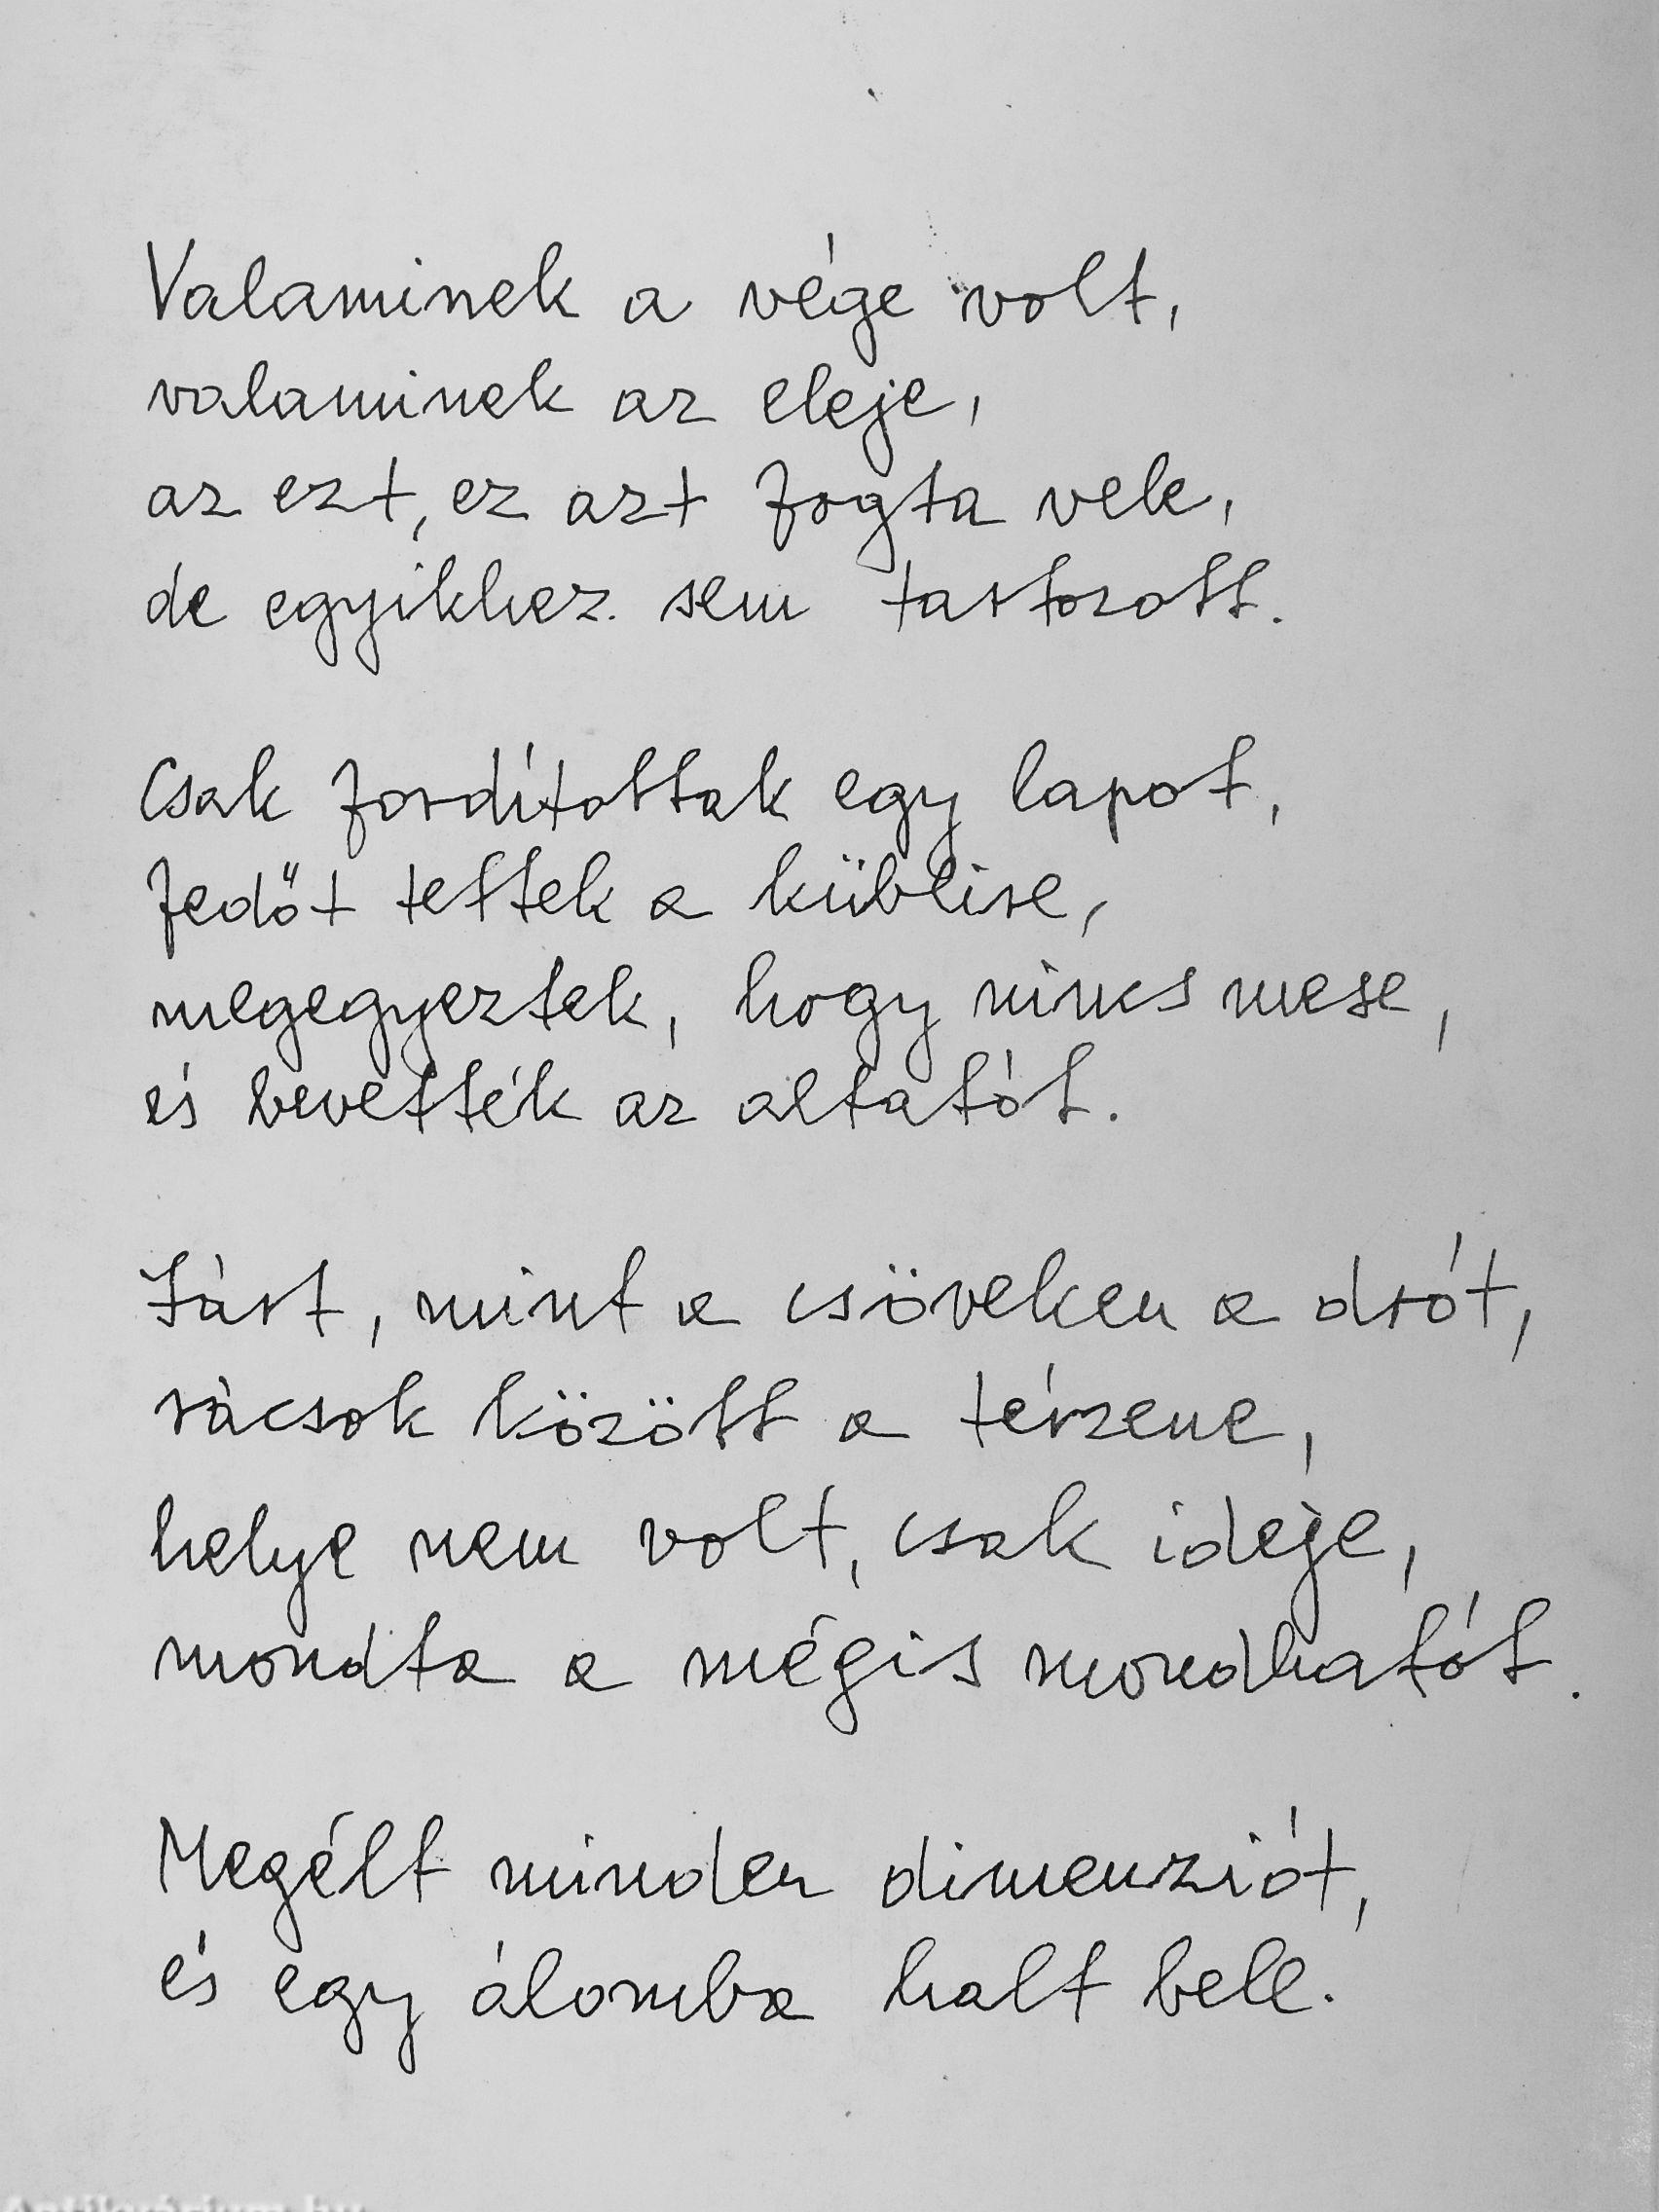 Valaminek a vége volt,
valaminek az eleje,
az ezt, ez azt fogta vele,
de egyikhez sem tartozott.
Csak fordítottak egy lapot,
fedőt tettek a küblire,
megegyeztek, hogy nincs mese,
és bevették az altatót.
Járt, mint a csöveken a drót,
rácsok között a térzene,
helye nem volt, csak ideje,
mondta a mégis mondhatót.
Megélt minden dimenziót,
és egy álomba halt bele.
Antikvárium.hu